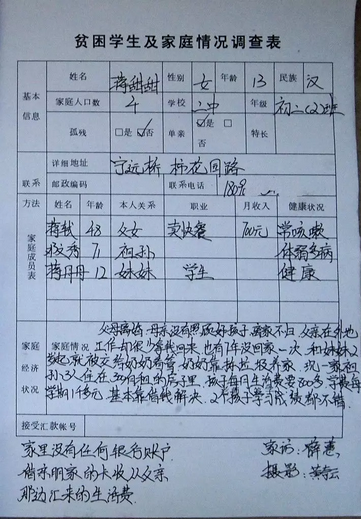 贫困学生及家庭情况调查表
基本信息 姓名 蒋甜甜 性别 女 年龄 13 民族 汉
家庭人口数 4 学校 二中 年级 初二(2)班
孤残 □是 ☑否 单亲 ☑是 □否 特长
联系方法 详细地址 宁远桥 柿花园路
邮政编码 联系电话 1809
家庭成员表 姓名 年龄 本人关系 职业 月收入 健康状况
蒋 48 父女 卖快餐 700元 常咳嗽
秀 71 祖孙 体弱多病
蒋丹丹 12 妹妹 学生 健康
家庭经济状况 家庭情况 父母离婚 母亲没有照顾好孩子 离家不归 父亲在外地
工作 也有 年没回家一次 和妹妹2
被交给奶奶看管 奶奶靠 捡垃圾养家 现一家祖
孙3人住在 房子里 孩子每月生活费 300多 学费每
学期1千多元 基本靠借钱解决 2个孩子学习成绩都不错
接受汇款账号
家里没有任何银行账户
借亲朋家的卡收父亲
那边汇来的生活费
家访：薛惠
摄影：黄云